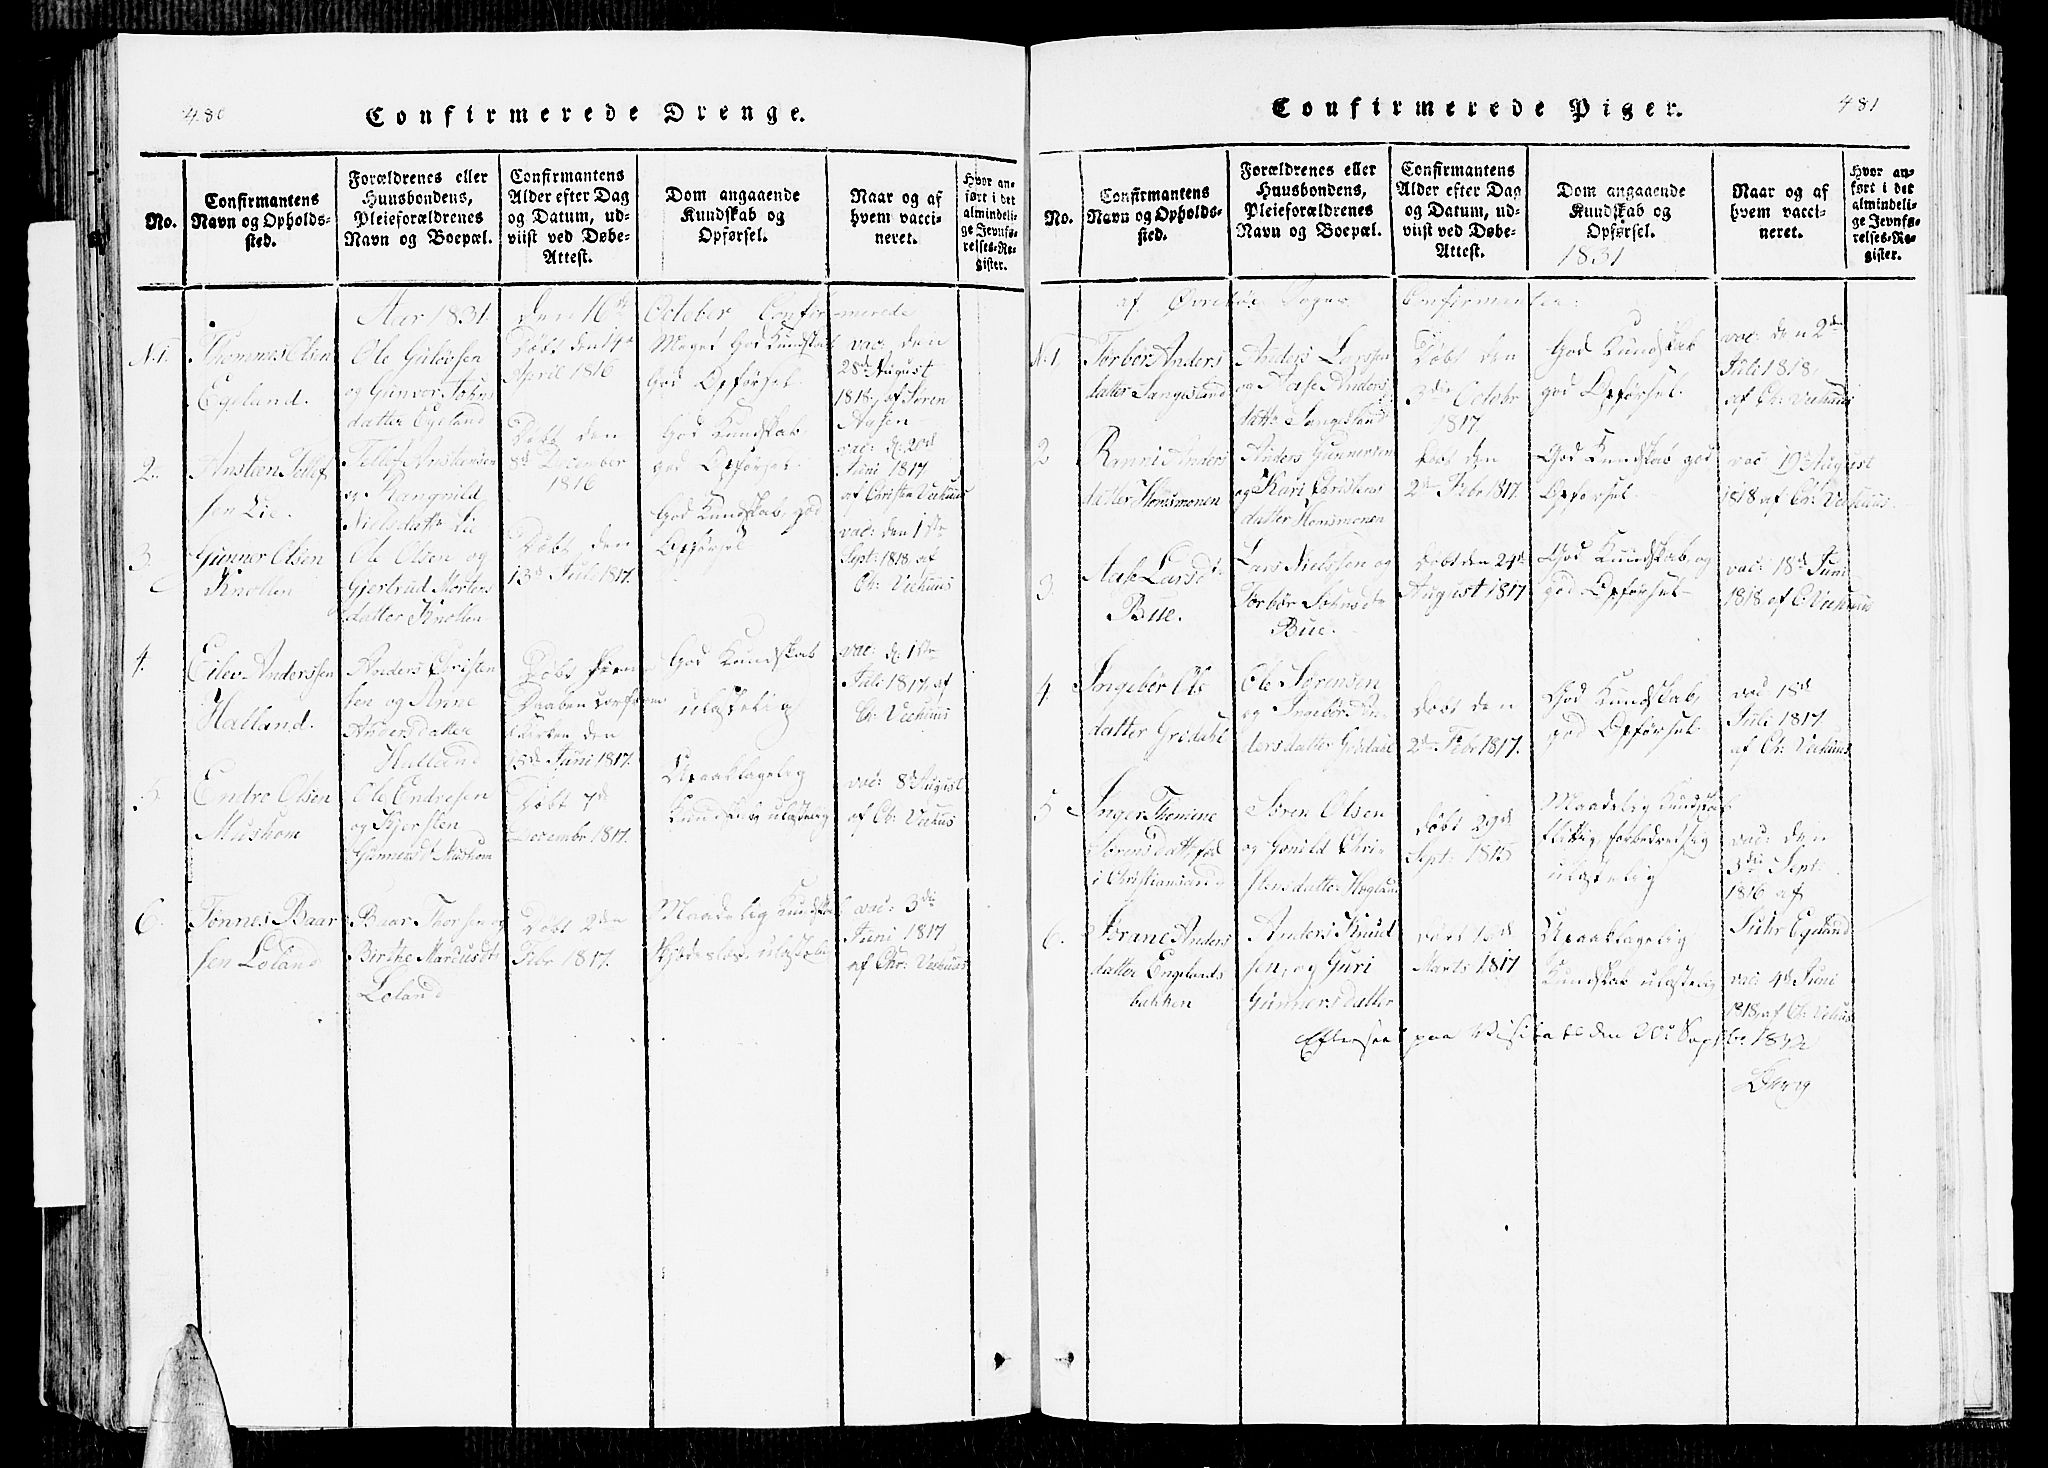 480
Confirmerede Drenge.
No.
Confirmantens
Navn og Opholds-
sted.
Forældrenes eller
Huusbondens,
Pleieforældrenes
Navn og Boepæl.
Confirmantens
Alder efter Dag
og Datum, ud-
viist ved Døbe-
Attest.
Dom angaaende
Kundskab og
Opførsel.
Naar og af
hvem vacci-
neret.
Hvor an-
ført i det
almindeli-
ge Jevnfø-
relses-Re-
gister.
Aar 1831 den 16de October Confirmerede
No 1.
Thommes Olsen
Egeland.
Ole Gulovsen
og Gunvor Johns
datter Egeland
Døbt den 14de
April 1816
Meget God Kundskab
God Opførsel
vac: den
28de August
1818, af Søren
2.
Anstien Tellef
sen Lie.
Tellef Anstensen
og Rangvild
Nielsdattr Lie
Døbt den
8de December
1816
God Kundskab
God Opførsel
vac: d. 20de
Juni 1817
af Christen Veehuus
3.
Gunner Olsen
Knollen
Ole Olsen og
Gjertrud Mortens
datter Knollen
Døbt den
13de Juli 1817.
God Kundskab, god
Opførsel
vac: den 1ste
Sept: 1818 af
Ch: Veehuus
4.
Eilev Anderssen
Halland.
Anders Christen
sen og Anne
Andersdatter
Halland
Døbt
Daaben
Kirken den
15de Juni 1817.
God Kundskab
ulastelig
vac: d. 1ste
Juli 1817 af
Ch: Veehuus
5.
Endre Olsen
Mushom
Ole Endresen
og Kjersten
Gunnersdt Mushom
Døbt 7de
Decembr 1817.
Upaaklagelig
Kundskab ulastelig
vac: 8de August
af Ch: Veehuus
6.
Tønnes Baar
sen Løland
Baar Thorsen og
Birthe Marcusdtr
Løland
Døbt 2den
Febr 1817.
Maadelig Kundskab
ulastelig
vac: 3die
Juni 1817
af Chr: Veehuus
481
Confirmerede Piger.
No.
Confirmantens
Navn og Opholds-
sted.
Forældrenes eller
Huusbondens,
Pleieforældrenes
Navn og Boepæl.
Confirmantens
Alder efter Dag
og Datum, ud-
viist ved Døbe-
Attest.
Dom angaaende
Kundskab og
Opførsel.
1831
Naar og af
hvem vacci-
neret.
Hvor an-
ført i det
almindeli-
ge Jevnfø-
relses-Re-
gister.
af Øvrebøe Sogns Confirmenter:
No 1
Torbor Anders
datter Langeland
Anders Larssen
og Aase Anders
dattr Langeland
Døbt den
3die Octobr
1817
God Kundskab
god Opførsel.
vac: den 2den
Juli 1818
af Ch: Veehuus
2
Ranni Anders
datter Homsmonen
Anders Gunnersen
og Kari Christens
datter Homsmonen
Døbt den
2den Febr 1817.
God Kundskab god
Opførsel.
vac: 19de August
1818 af Ch: Veehuus.
3.
Aase Larsdt
Bue.
Lars Nielsen og
Torbor Johnsdtr
Bue.
Døbt den 24de
August 1817
God Kundskab, og
god Opførsel
vac: 18de Juni
1818 af C. Veehuus
4.
Ingebor Ols
datter Gredahl
Ole Sørensen
og Ingebor
tersdatter Gredahl
Døbt den
2den Febr 1817.
God Kundskab,
god Opførsel
vac: 18de
Juli 1817.
af Ch: Veehuus
5
Inger Thomine
Sørensdattr fød
i Christiansand
Søren Olsen
og Gonild Chri
stensdatter
Døbt 29de
Sept: 1815
Maadelig Kundskab
flittig forbedret sig
ulastelig
vac: den
3die Sept:
1816 af
Suhr Egeland
6.
Jorane Anders
datter Engelands
bakken
Anders Knud
sen, og Guri
Gunnersdatter
Døbt 16de
Marts 1817
Upaaklagelig
Kundskab ulastelig
vac: 4de Juni
1818 af Ch: Vehuus
Efterseet paa Visitats den 20de Septbr 1832